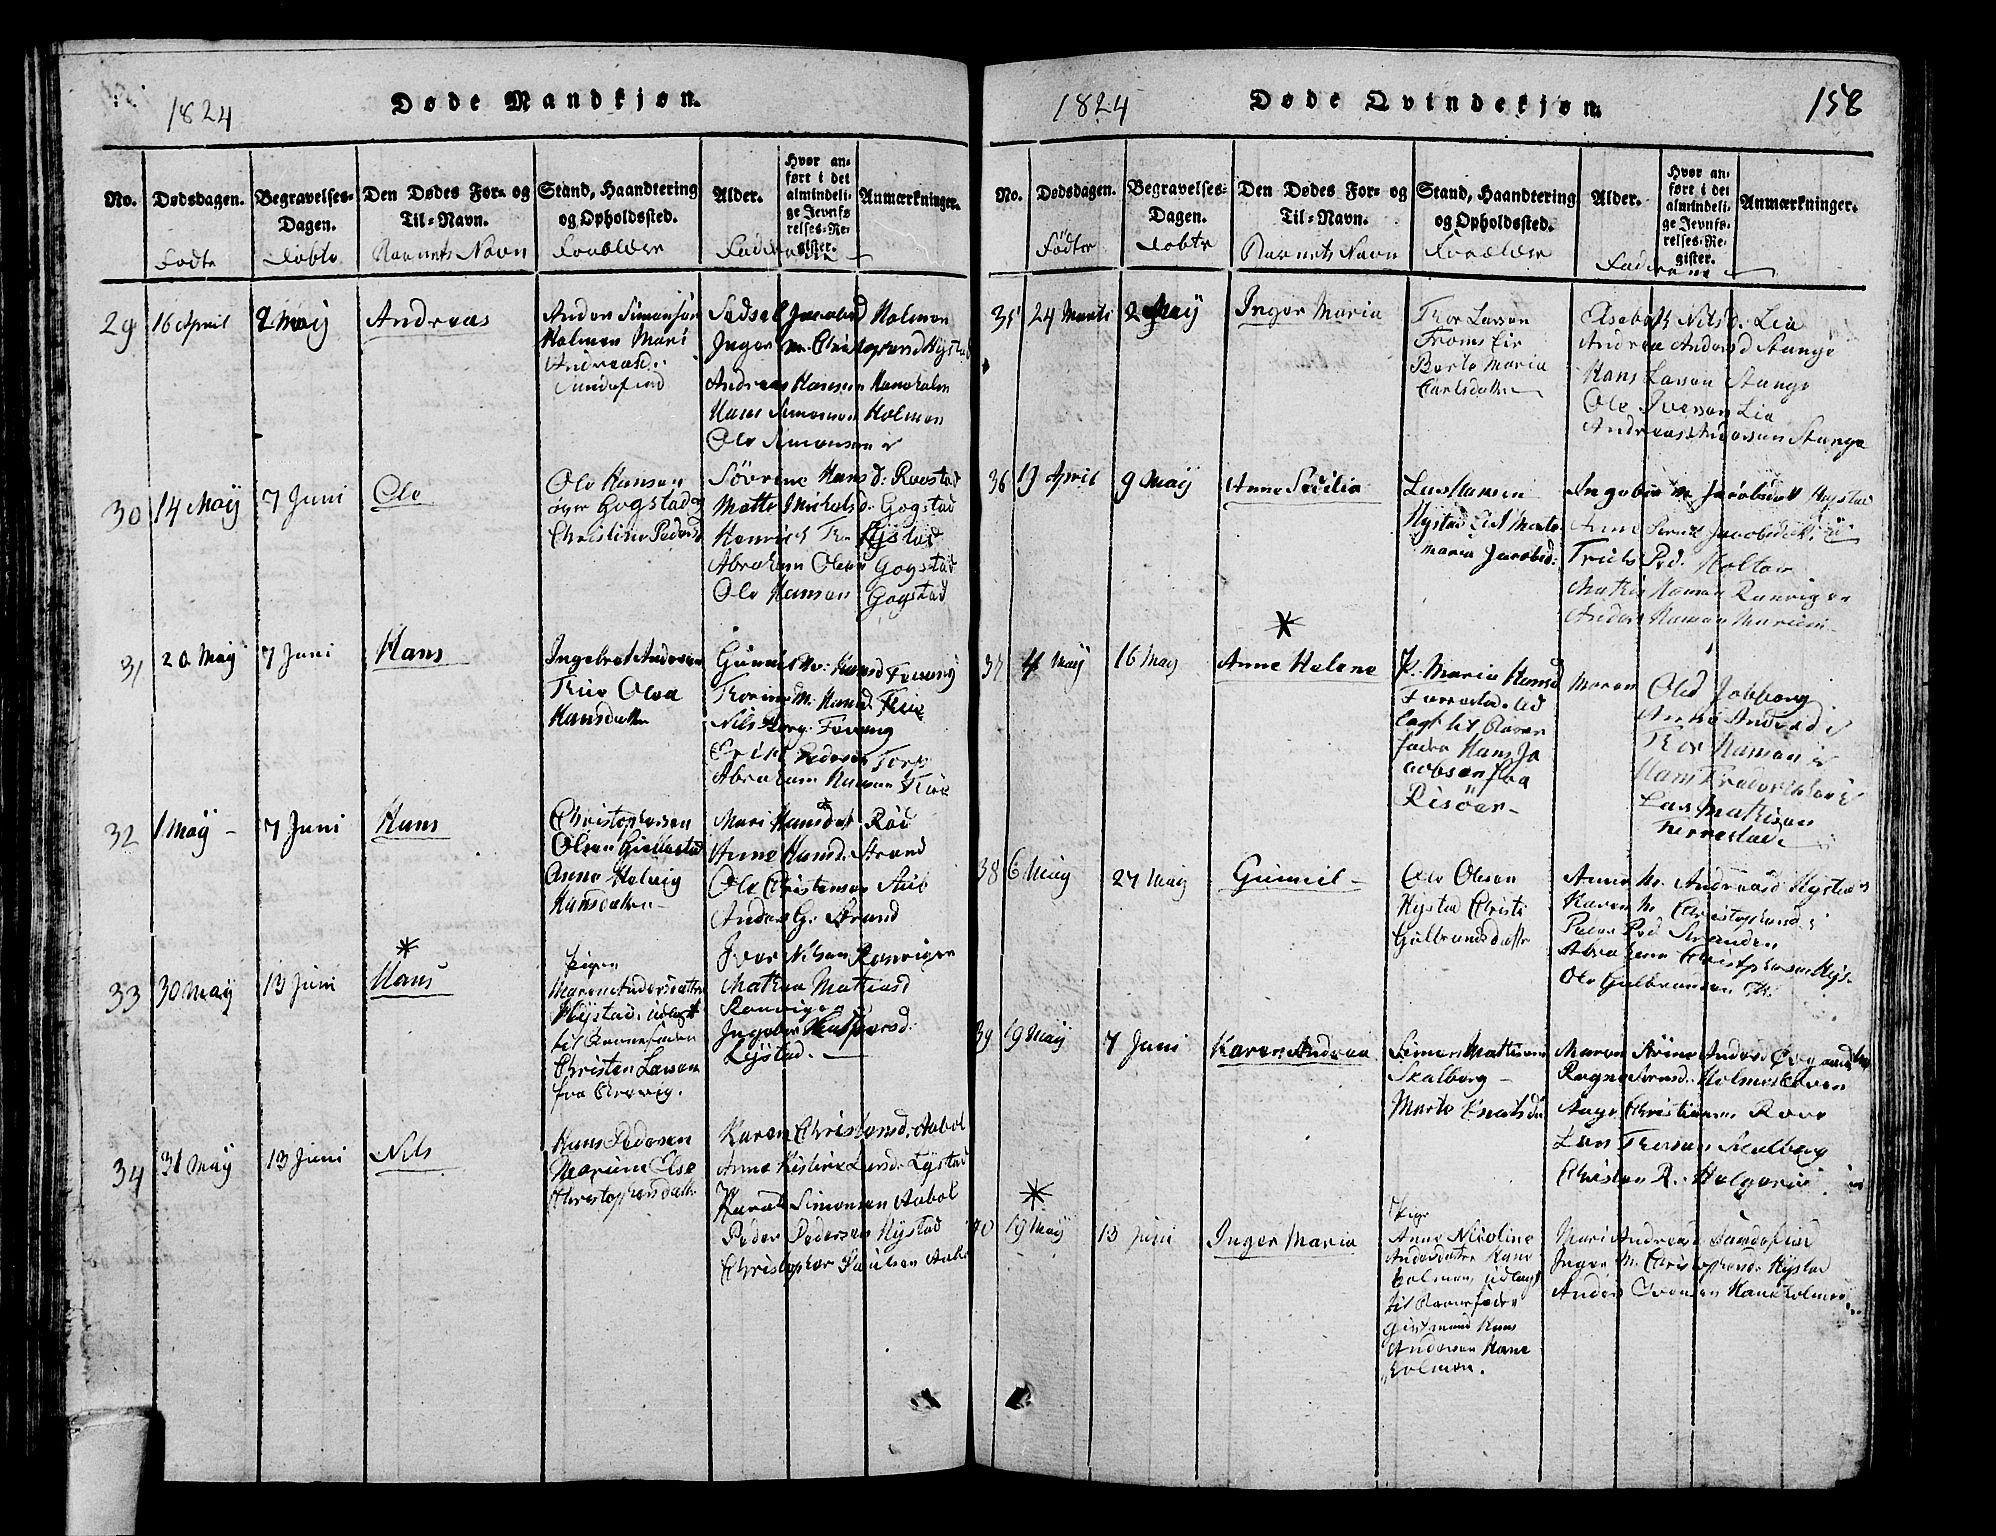 1824
Døde Mandkjøn.
No.
Dødsdagen.
Begravelses-
Dagen.
Den Dødes For- og
Til-Navn.
Stand, Haandtering
og Opholdssted.
Alder.
Hvor an-
ført i det
almindeli-
ge Jevnfø
relses-Re-
gister.
Anmærkninger.
Fødte
Døbte
Barnets Navn
Forældre
Faderne
29
16 April
2 May
Andreas
Anders Simonsøn
Holmen Mari
Andreasd.
Sandefiord
Sidsel Jacobsd Holmen
Inger M. Christophersd Hystad
Andreas Hansen Kaneholm
Hans Simonsen Holmen
Ole Simonsen
30
14 May
7 Juni
Ole
Ole Hansen
Gogstad og
Christine Pedersd
Søvrine Hansd: Rovstad
Mette Nichelsd. Gogstad
Henrich Hystad
Abraham Olsen Gogstad
Ole Hansen Gogstad
31
20 May
7 Juni
Hans
Ingebret Andersen
Olea
Hansdatter
Nils Fevang
Abraham Hansen
32
1 May
7 Juni
Hans
Christophersen
Olsen Giellestad
Anne Helvig
Hansdatter
Mari Hansdat Rød
Anne Hansd. Strand
Ole Christensen
Anders G. Strand
33
30 May
13 Juni
*
Hans
Pigen
Maren Andersdatter
Hystad, udlagt
til Barnefader
Christen Larsen
fra
Iver Nilsen Ranvigen
Mathea Mathiasd
Ranvigen
Ingeborg
34
31 May
13 Juni
Nils
Hans Pedersen
Marium Else
Christophersdatter
Karen Christensd. Aabol
Anne Kistine Larsd.
Simonsen Aabol
Peder Pedersen Hystad
Christopher Paulsen
1824
Døde Qvindekjøn.
158
No.
Dødsdagen.
Begravelses-
Dagen.
Den Dødes For- og
Til-Navn.
Stand, Haandtering
og Opholdssted.
Alder.
Hvor an-
ført i det
almindeli-
ge Jevnfø-
relses-Re-
gister.
Anmærkninger.
Fødte
Døbte
Barnets Navn
Forældre
Fadderne
35
24 Marts
2 May
Inger Maria
Thor Larsen
Berte Maria
Carlsdatter
Elsebeth Nilsd. Lia
Andrea Andersd Stange
Hans Larsen Stange
Ole Iversen Lia
Andreas Andersen Stange
36
19 April
9 May
Anne Sedilia
Lars Hansen
Hystad
Maria Jacobsd.
Ingeborg M. Jacobsdatt Hystad
Anne Jacobsdatt.
Holtan
Mathis Hansen Ranvigen
Anders Hansen Marium
*
37
4 May
16 May
Anne Helene
P. Maria Hansd
ud
lagt til Barne
fader Hans Ja
cobsen fra
Risöer
Maren Olsd Jobborg
Thor Hansen
Lars Mathisen
38
6 May
27 May
Gunnil
Ole Olesen
Hystad Christi
Gulbrandsdatte
Anne M. Andreasd Hystad
Karen M. Christophersd.
Peder Ped Stranden
Abraham Christophersen Hys-
Ole Gulbransen
39
19 May
7 Juni
Karen Andrea
Simen Mattisen
Skalberg
Marte Knutsda
Maren Stine Andersd
Ragne
Aage Christiansen
Lars Thorsen Skalberg
Christen
*
40
19 May
13 Juni
Inger Maria
Pige
Anne Nicoline
Andersdatter Kane
holmen, udlagt
til Barnefader
gift mand Hans
Andersen Kane
holmen.
Mari Andreasd Sandefiord
Inger M. Christophersd. Hystad
Anders Iversen Kaneholmen